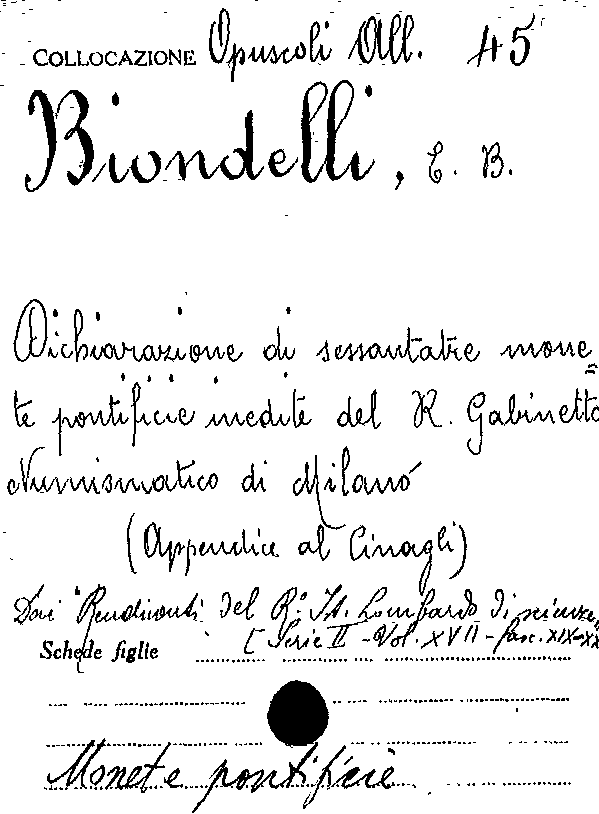 COLLOCAZIONE Opuscoli All. 45
Biondelli, E. B.
Dichiarazione di sessantatre mone=
te pontificie inedite del R. Gabinetto
Numismatico di Milano
(Appendice al Cinagli)
Dai "Rendiconti del R.º Ist. Lombardo di scienze,
[Serie II - Vol. XVII - fasc. XIX-XX
Schede figlie
Monete pontificie